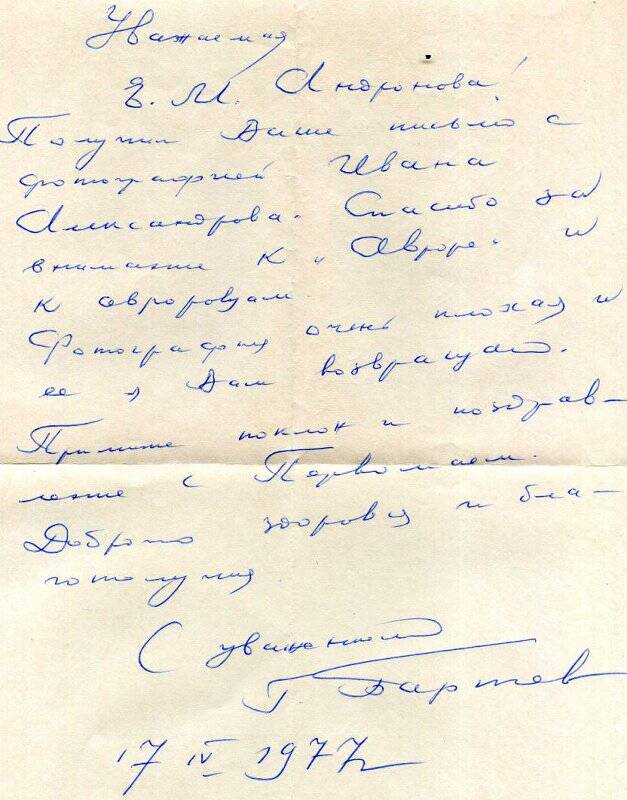 Уважаемая
Е. М. Андронова!
Получил Ваше письмо с
фотографией Ивана
Александрова. Спасибо за
внимание к „Авроре" и
к авроровцам
Фотография очень плохая и
ее я Вам возвращаю.
Примите поклон и поздрав-
ление с Первомаем.
Доброго здоровья и бла-
гополучия
С уважением
Г Бартев
17 IV 1977